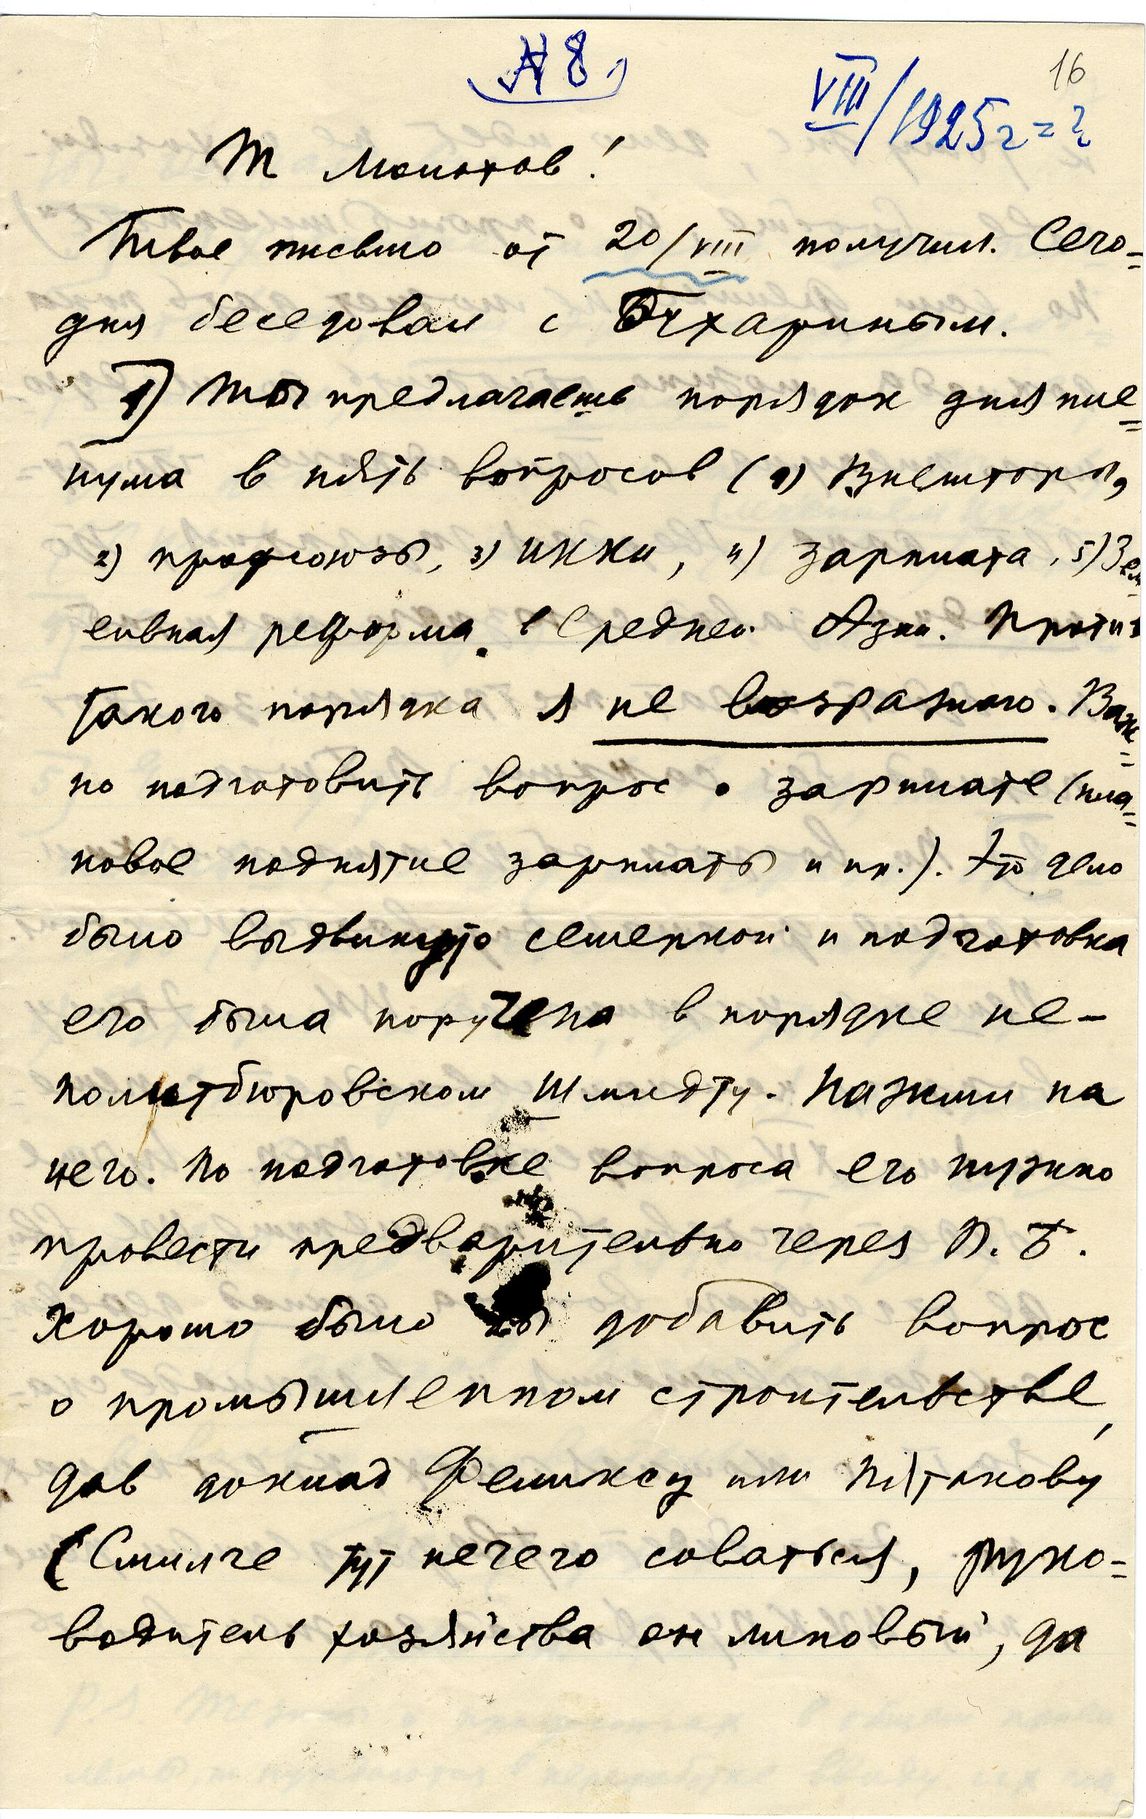 № 8.
16
VIII/1925 г = ?
Т Молотов!
Твое письмо от 20/VIII получил. Сего=
дня беседовал с Бухариным.
1) Ты предлагаешь порядок дня пле=
нума в пять вопросов (1) Внешторг,
2) профсоюзы, 3) ИККИ, 4) зарплата, 5) Зем
ельная реформа в Средней Азии. Против
такого порядка я не возражаю. Важ=
но подготовить вопрос о зарплате (пла=
новое поднятие зарплаты и пр.). Это дело
было выдвинуто семеркой и подготовка
его была поручена в порядке не-
политбюровском Шмидту. Нажми на
него. По подготовке вопроса его нужно
провести предварительно через П.Б.
Хорошо было бы добавить вопрос
о промышленном строительстве,
дав доклад Феликсу или Пятакову
(Смилге тут нечего соваться, руко=
водитель хозяйства он липовый, да